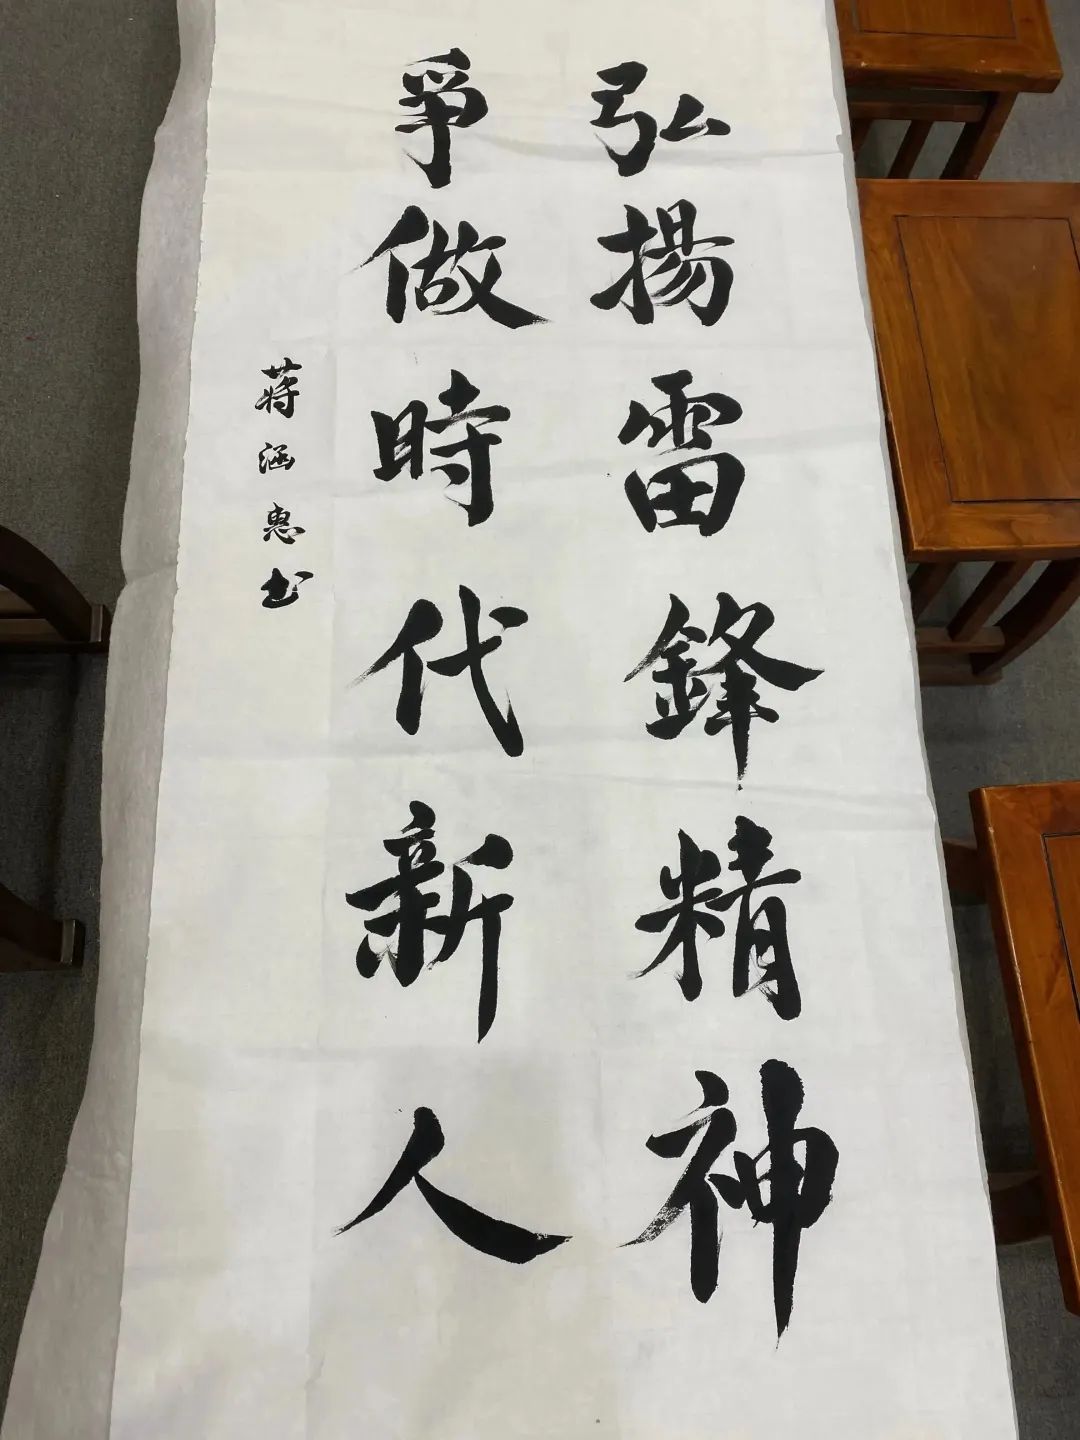 弘揚雷鋒精神
爭做時代新人
蒋涵惠书